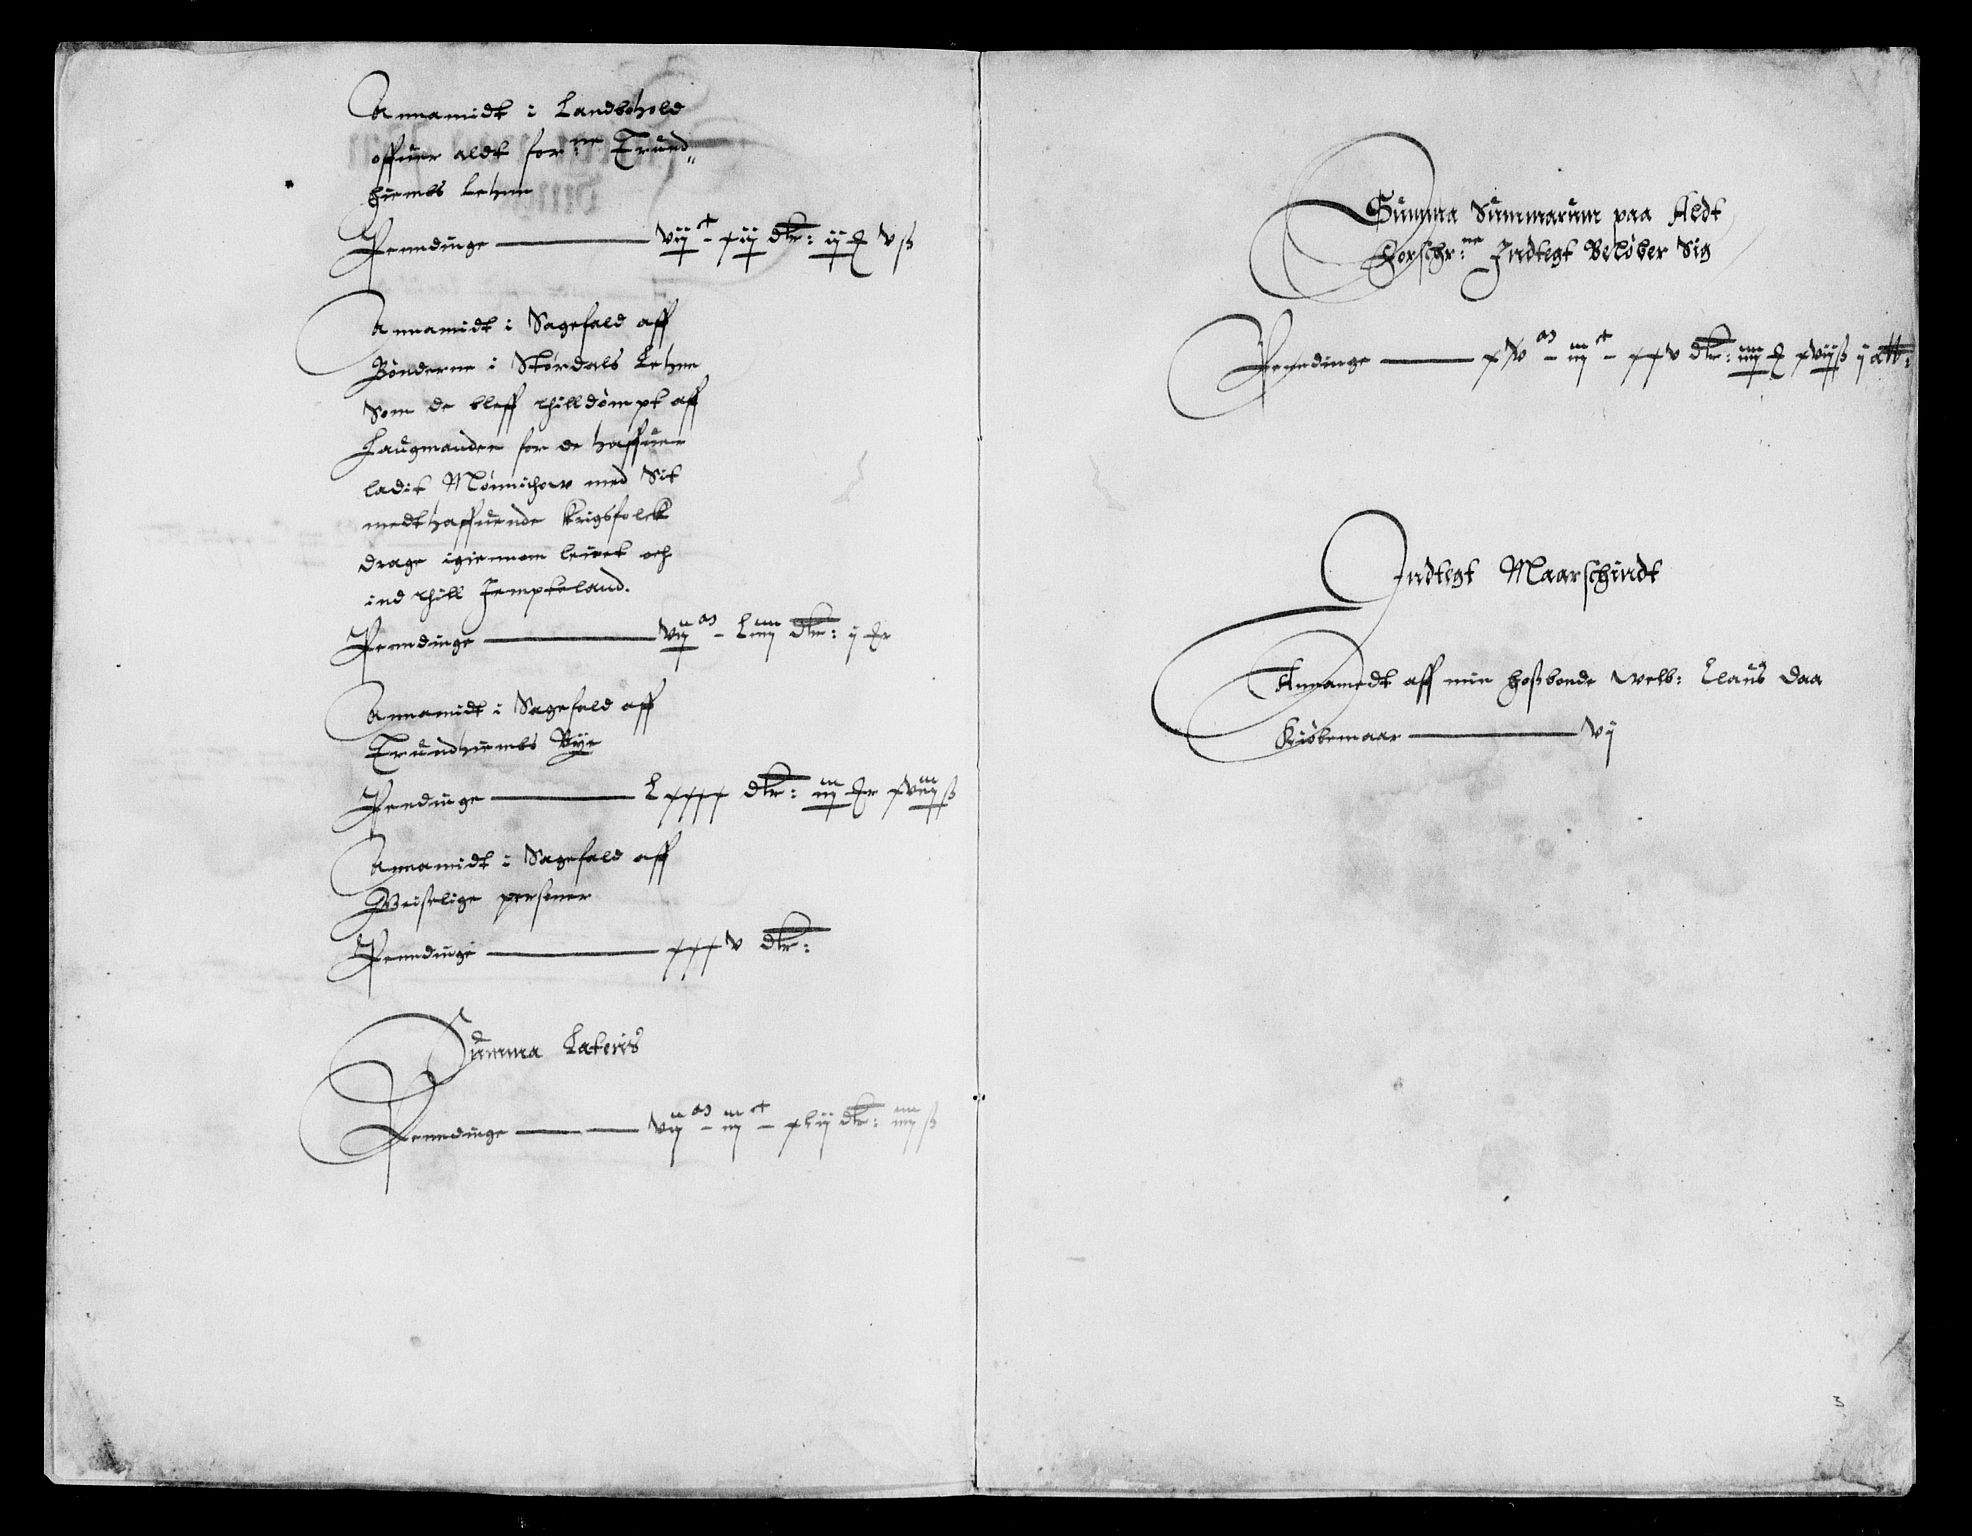 Annamidt i Landbohold
offuer aldt for:ne Trund„
hiembs Lehnn
Penndinge ——— vij c xij dlr: ij ß
Annamidt i Sagefald aff
Bønderne i Størdals Lehnn
Som de bleff thilldømpt aff
Laugmanden for de haffuer
ladit Mønnichow med Sit
medthaffuende Krigsfolck
drage igiennom leiret och
ind thill Jempteland.
Penndinge ——— dlr: ij
Annamidt i Sagefald aff
Trundhiembs Bye
Penndinge ——— Lxxxx dlr: iiij
Annamidt i Sagefald aff
Geistlige personer
Penndinge ——— xxxv dlr:
Summa Lateris
Penndinge ——— xlij dlr: iiij ß
Summa Summarum paa Aldt
Forschr:ne Indtegt Beløber Sig
Penndinge ——— xxv dlr: xvij ß ij alb:
Indtegt Maarschindt
Annamedt aff min hoßbonde welb: Claus Daa
Kiøbemaar ——— vij
3